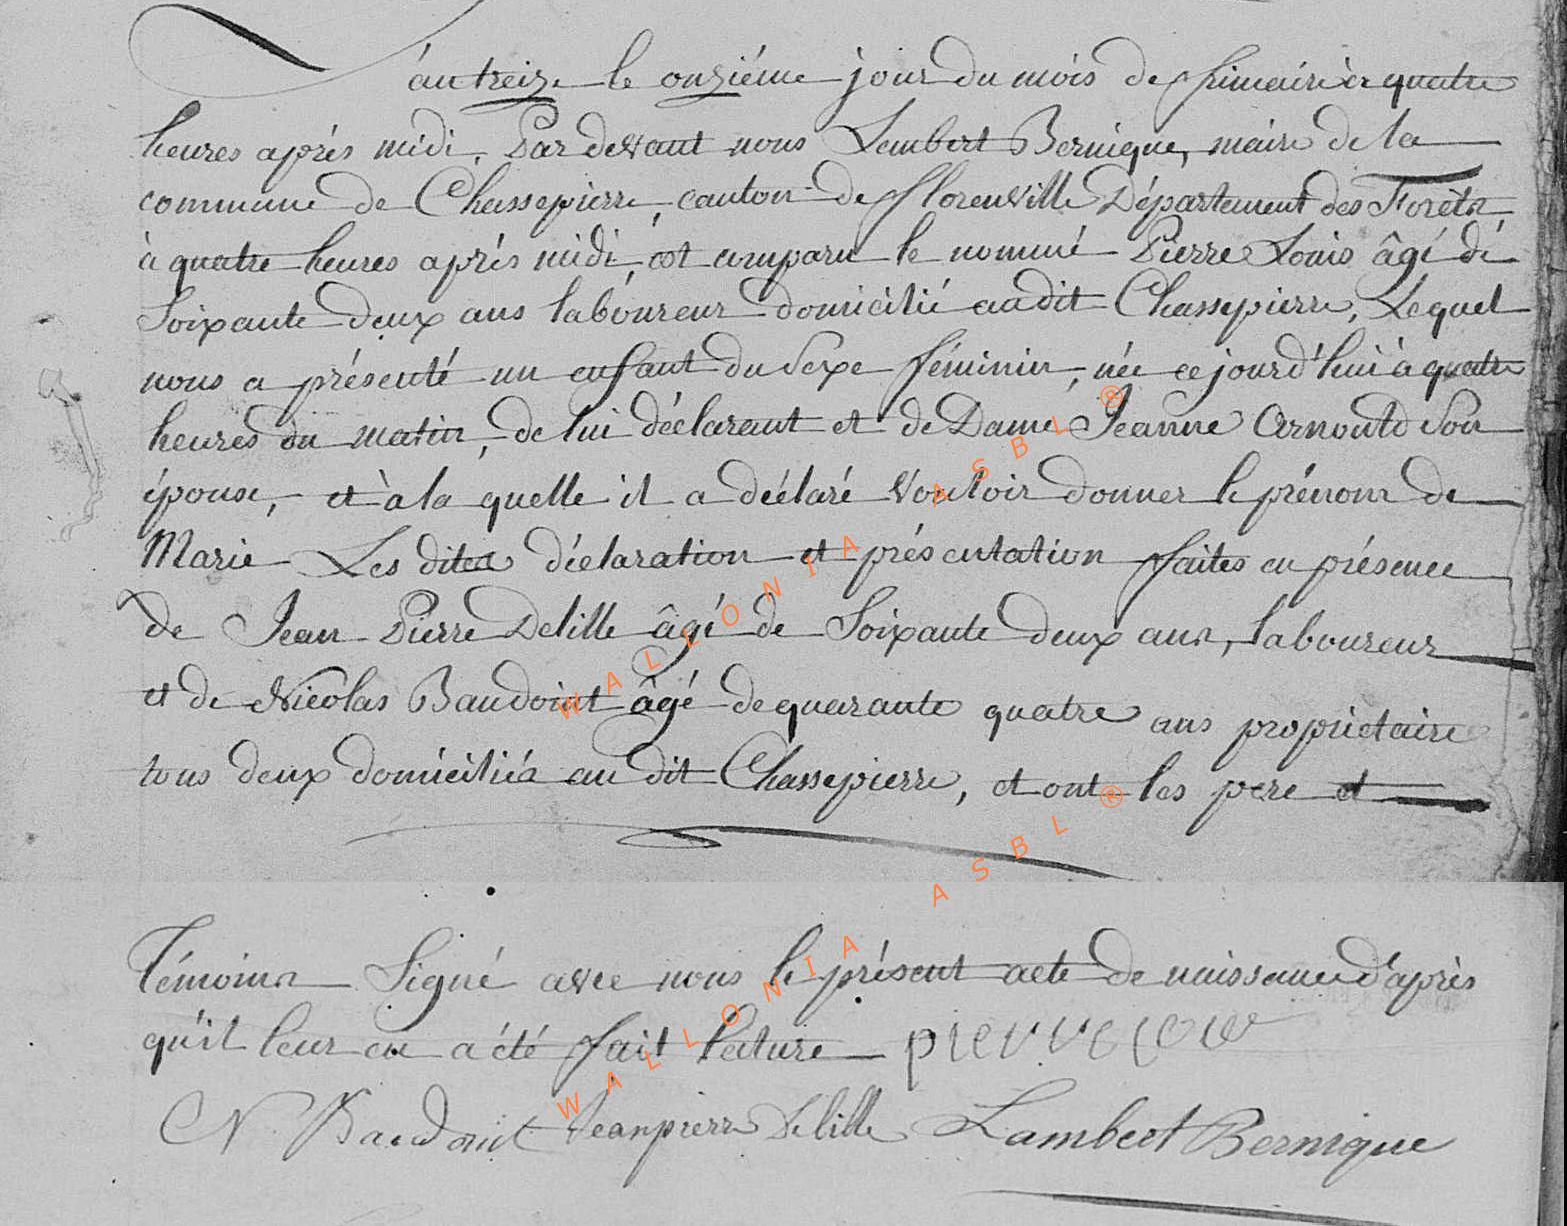 L'an treize le onziéme jour du mois de frimaire à quatre
heures aprés midi. Par devant nous Lambert Bernique, maire de la
commune de Chassepierre, canton de florenville Département des Forêts
à quatre heures aprés midi, est comparu le nommé Pierre Louis âgé de
Soixante deux ans laboureur domicilié audit Chassepierre, Lequel
nous a présenté un enfant du Sexe féminin, née ce jourd'hui à quatre
heures du matin, de lui déclarant et de Dame Jeanne Arnould Son
épouse, et à la quelle il a déclaré Vouloir donner le prénom de
Marie Les dites déclaration et présentation faites en présence
de Jean Pierre Delille âgé de Soixante deux ans, laboureur
et de Nicolas Baudoint âgé de quarante quatre ans propriétaire
tous deux domiciliés au dit Chassepierre, et ont les pere et
Témoins Signé avec nous le présent acte de naissance d'après
qu'il leur en a été fait lecture
N Baudoint Jeanpierre Delille Lambert Bernique
WALLONIA ASBL ®
WALLONIA ASBL ®